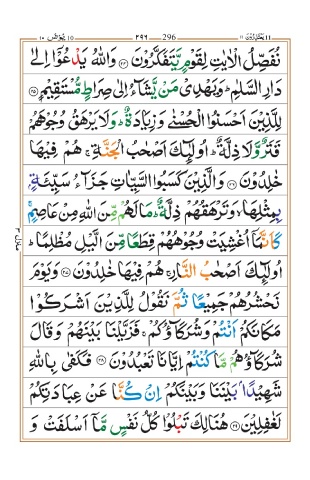 يونس ١٠ ٢٩٦ 296 يعتذرون ١١
نُفَصِّلُ الْاٰيٰتِ لِقَوْمٍ يَّتَفَكَّرُوْنَ ﴿۲۴﴾ وَاللّٰهُ يَدْعُوْۤا اِلٰى
دَارِ السَّلٰمِ ؕ وَيَهْدِىْ مَنْ يَّشَآءُ اِلٰى صِرَاطٍ مُّسْتَقِيْمٍ ﴿۲۵﴾
لِلَّذِيْنَ اَحْسَنُوا الْحُسْنٰى وَزِيَادَةٌ ؕ وَلَا يَرْهَقُ وُجُوْهَهُمْ
قَتَرٌ وَّلَا ذِلَّةٌ ؕ اُولٰٓئِكَ اَصْحٰبُ الْجَنَّةِ ۚ هُمْ فِيْهَا
خٰلِدُوْنَ ﴿۲۶﴾ وَالَّذِيْنَ كَسَبُوا السَّيِّاٰتِ جَزَآءُ سَيِّئَةٍۭ
بِمِثْلِهَا ۙ وَتَرْهَقُهُمْ ذِلَّةٌ ؕ مَا لَهُمْ مِّنَ اللّٰهِ مِنْ عَاصِمٍ ۚ
كَاَنَّمَاۤ اُغْشِيَتْ وُجُوْهُهُمْ قِطَعًا مِّنَ الَّيْلِ مُظْلِمًا ؕ
اُولٰٓئِكَ اَصْحٰبُ النَّارِ ۚ هُمْ فِيْهَا خٰلِدُوْنَ ﴿۲۷﴾ وَيَوْمَ
نَحْشُرُهُمْ جَمِيْعًا ثُمَّ نَقُوْلُ لِلَّذِيْنَ اَشْرَكُوْا
مَكَانَكُمْ اَنْتُمْ وَشُرَكَآؤُكُمْ ۚ فَزَيَّلْنَا بَيْنَهُمْ وَقَالَ
شُرَكَآؤُهُمْ مَّا كُنْتُمْ اِيَّانَا تَعْبُدُوْنَ ﴿۲۸﴾ فَكَفٰى بِاللّٰهِ
شَهِيْدًۢا بَيْنَنَا وَبَيْنَكُمْ اِنْ كُنَّا عَنْ عِبَادَتِكُمْ
لَغٰفِلِيْنَ ﴿۲۹﴾ هُنَالِكَ تَبْلُوْا كُلُّ نَفْسٍ مَّاۤ اَسْلَفَتْ وَ
منزل ٣